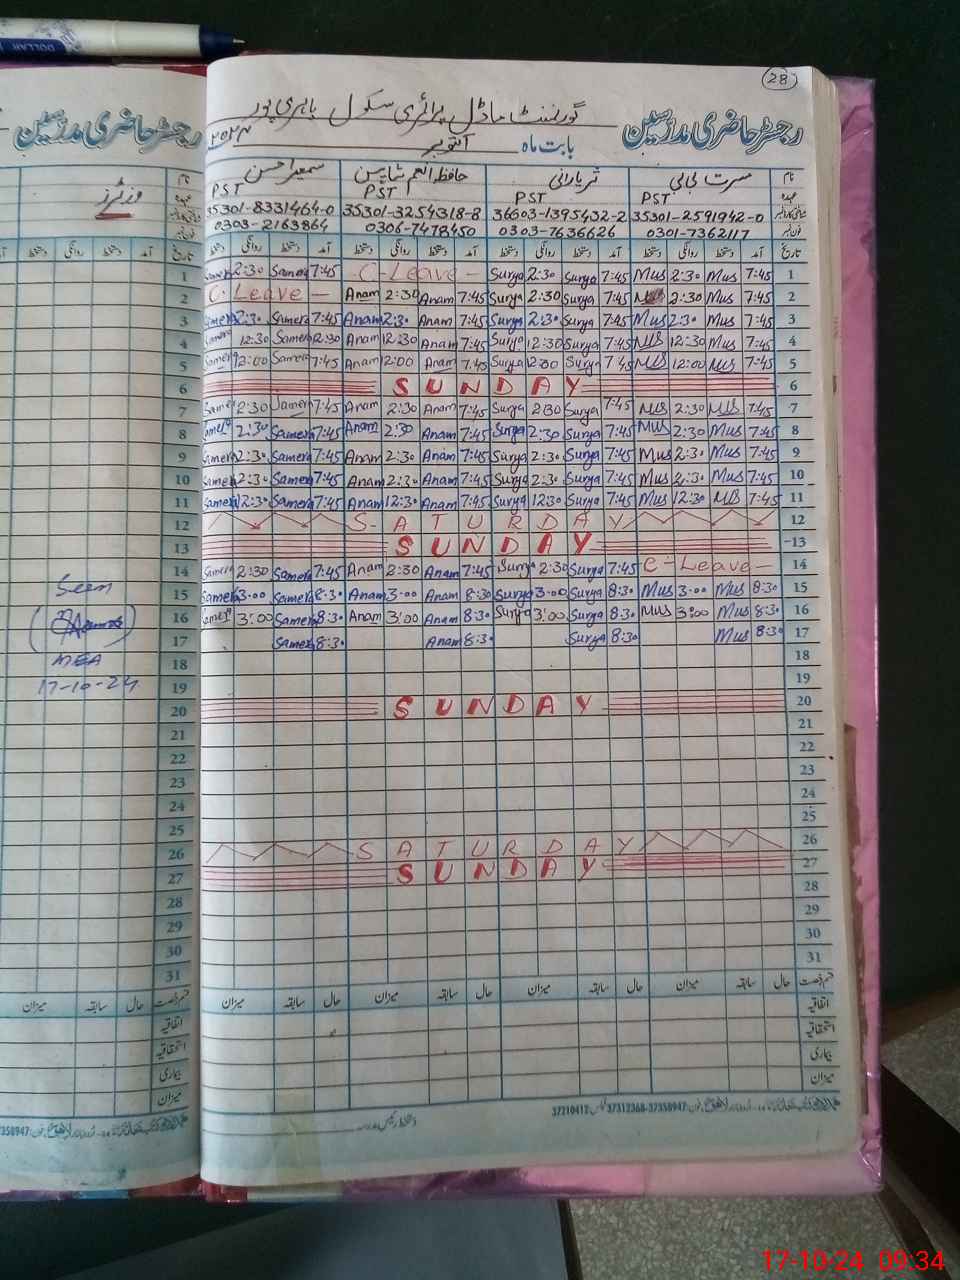 28
گورنمنٹ ماڈل پرائمری سکول باہری پور
رجسٹر حاضری مدرسین بابت ماہ اکتوبر ۲۰۲۴
نام مسرت بی بی ثریا رانی حافظ انعم شاہین سمیرا حسن
عہدہ PST PST PST PST
35301-8331464-0 35301-3254318-8 36603-1395432-2 35301-2591942-0
0303-2163864 0306-7478450 0303-7636626 0301-7362117
تاریخ آمد دستخط روانگی دستخط آمد دستخط روانگی دستخط آمد دستخط روانگی دستخط آمد دستخط روانگی دستخط
Samera 2:30 Samera 7:45 C-Leave - Surya 2:30 Surya 7:45 Mus 2:30 Mus 7:45 1
C. Leave - Anam 2:30 Anam 7:45 Surya 2:30 Surya 7:45 Mus 2:30 Mus 7:45 2
Samera 2:30 Samera 7:45 Anam 2:30 Anam 7:45 Surya 2:30 Surya 7:45 Mus 2:30 Mus 7:45 3
Samera 12:30 Samera 2:30 Anam 12:30 Anam 7:45 Surya 12:30 Surya 7:45 Mus 12:30 Mus 7:45 4
Samera 12:00 Samera 7:45 Anam 12:00 Anam 7:45 Surya 12:00 Surya 7:45 Mus 12:00 Mus 7:45 5
SUNDAY 6
Samera 2:30 Samera 7:45 Anam 2:30 Anam 7:45 Surya 2:30 Surya 7:45 Mus 2:30 Mus 7:45 7
Samera 2:30 Samera 7:45 Anam 2:30 Anam 7:45 Surya 2:30 Surya 7:45 Mus 2:30 Mus 7:45 8
Samera 2:30 Samera 7:45 Anam 2:30 Anam 7:45 Surya 2:30 Surya 7:45 Mus 2:30 Mus 7:45 9
Samera 2:30 Samera 7:45 Anam 2:30 Anam 7:45 Surya 2:30 Surya 7:45 Mus 2:30 Mus 7:45 10
Samera 12:30 Samera 7:45 Anam 12:30 Anam 7:45 Surya 12:30 Surya 7:45 Mus 12:30 Mus 7:45 11
SATURDAY 12
SUNDAY 13
Samera 2:30 Samera 7:45 Anam 2:30 Anam 7:45 Surya 2:30 Surya 7:45 C-Leave - 14
Samera 3:00 Samera 8:30 Anam 3:00 Anam 8:30 Surya 3:00 Surya 8:30 Mus 3:00 Mus 8:30 15
Samera 3:00 Samera 8:30 Anam 3:00 Anam 8:30 Surya 3:00 Surya 8:30 Mus 3:00 Mus 8:30 16
Samera 8:30 Anam 8:30 Surya 8:30 Mus 8:30 17
18
19
SUNDAY 20
21
22
23
24
25
SATURDAY 26
SUNDAY 27
28
29
30
31
قسم رخصت حال سابقہ میزان حال سابقہ میزان حال سابقہ میزان حال سابقہ میزان
اتفاقیہ
استحقاقیہ
بیماری
میزان
37210412 37312368-37350947
دستخط رئیس مدرسہ
DOLLAR
رجسٹر حاضری مدرسین
نام
عہدہ
وزیٹرز
تاریخ آمد دستخط روانگی دستخط آمد
1
2
3
4
5
6
7
8
9
10
11
12
13
14
Seen 15
16
17
MEA 18
17-10-24 19
20
21
22
23
24
25
26
27
28
29
30
31
قسم رخصت حال سابقہ میزان
اتفاقیہ
استحقاقیہ
بیماری
میزان
17-10-24 09:34